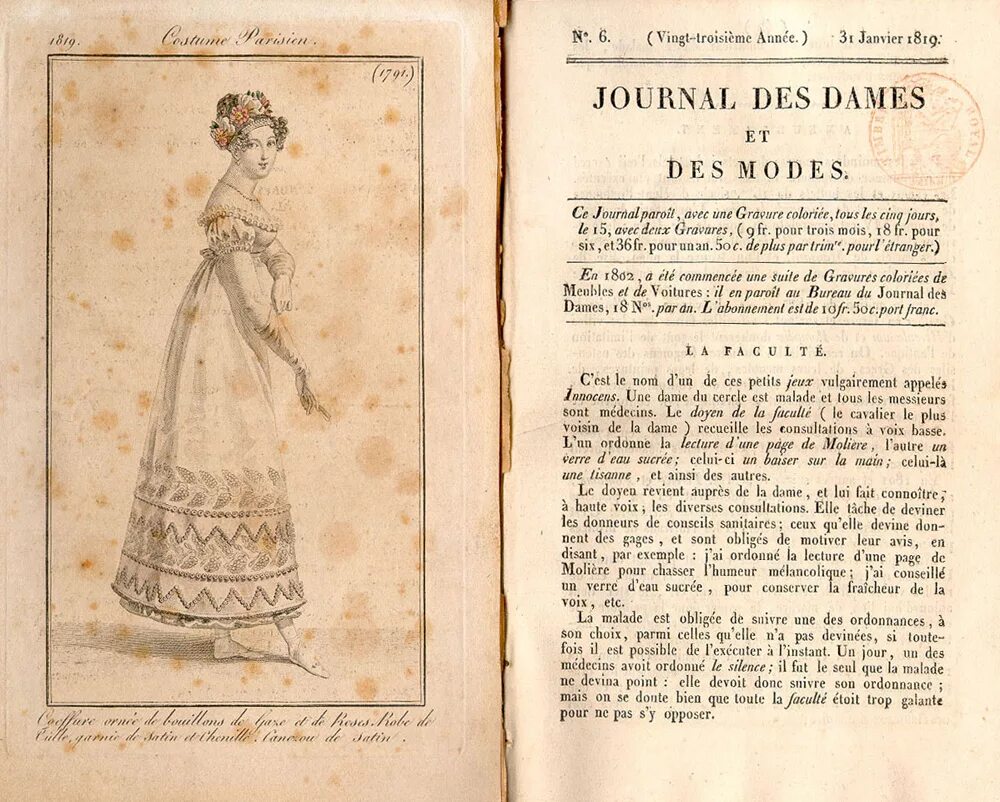 1819.
Costume Parisien.
(1791.)
Coeffure ornée de bouillons de Gaze et de Roses. Robe de
Tulle, garnie de Satin et Chenille. Canezou de Satin.
N°. 6. (Vingt-troisième Année.) 31 Janvier 1819.
JOURNAL DES DAMES
ET
DES MODES.
Ce Journal paroît, avec une Gravure coloriée, tous les cinq jours,
le 15, avec deux Gravures, (9 fr. pour trois mois, 18 fr. pour
six, et 36 fr. pour un an. 50 c. de plus par trimre. pour l'étranger.)
En 1802, a été commencée une suite de Gravures coloriées de
Meubles et de Voitures : il en paroît au Bureau du Journal des
Dames, 18 Nos. par an. L'abonnement est de 10 fr. 50 c. port franc.
LA FACULTÉ.
C'est le nom d'un de ces petits jeux vulgairement appelés
Innocens. Une dame du cercle est malade et tous les messieurs
sont médecins. Le doyen de la faculté ( le cavalier le plus
voisin de la dame ) recueille les consultations à voix basse.
L'un ordonne la lecture d'une page de Molière, l'autre un
verre d'eau sucrée; celui-ci un baiser sur la main; celui-là
une tisanne, et ainsi des autres.
Le doyen revient auprès de la dame, et lui fait connoître,
à haute voix, les diverses consultations. Elle tâche de deviner
les donneurs de conseils sanitaires; ceux qu'elle devine don-
nent des gages, et sont obligés de motiver leur avis, en
disant, par exemple : j'ai ordonné la lecture d'une page de
Molière pour chasser l'humeur mélancolique; j'ai conseillé
un verre d'eau sucrée, pour conserver la fraîcheur de la
voix, etc.
La malade est obligée de suivre une des ordonnances, à
son choix, parmi celles qu'elle n'a pas devinées, si toute-
fois il est possible de l'exécuter à l'instant. Un jour, un des
médecins avoit ordonné le silence; il fut le seul que la malade
ne devina point : elle devoit donc suivre son ordonnance;
mais on se doute bien que toute la faculté étoit trop galante
pour ne pas s'y opposer.